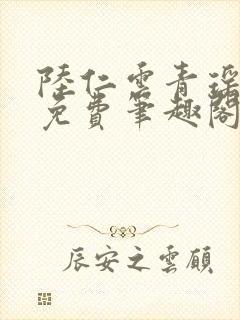 陸仁雲青瑤
免費筆趣閣
辰安之雲頧